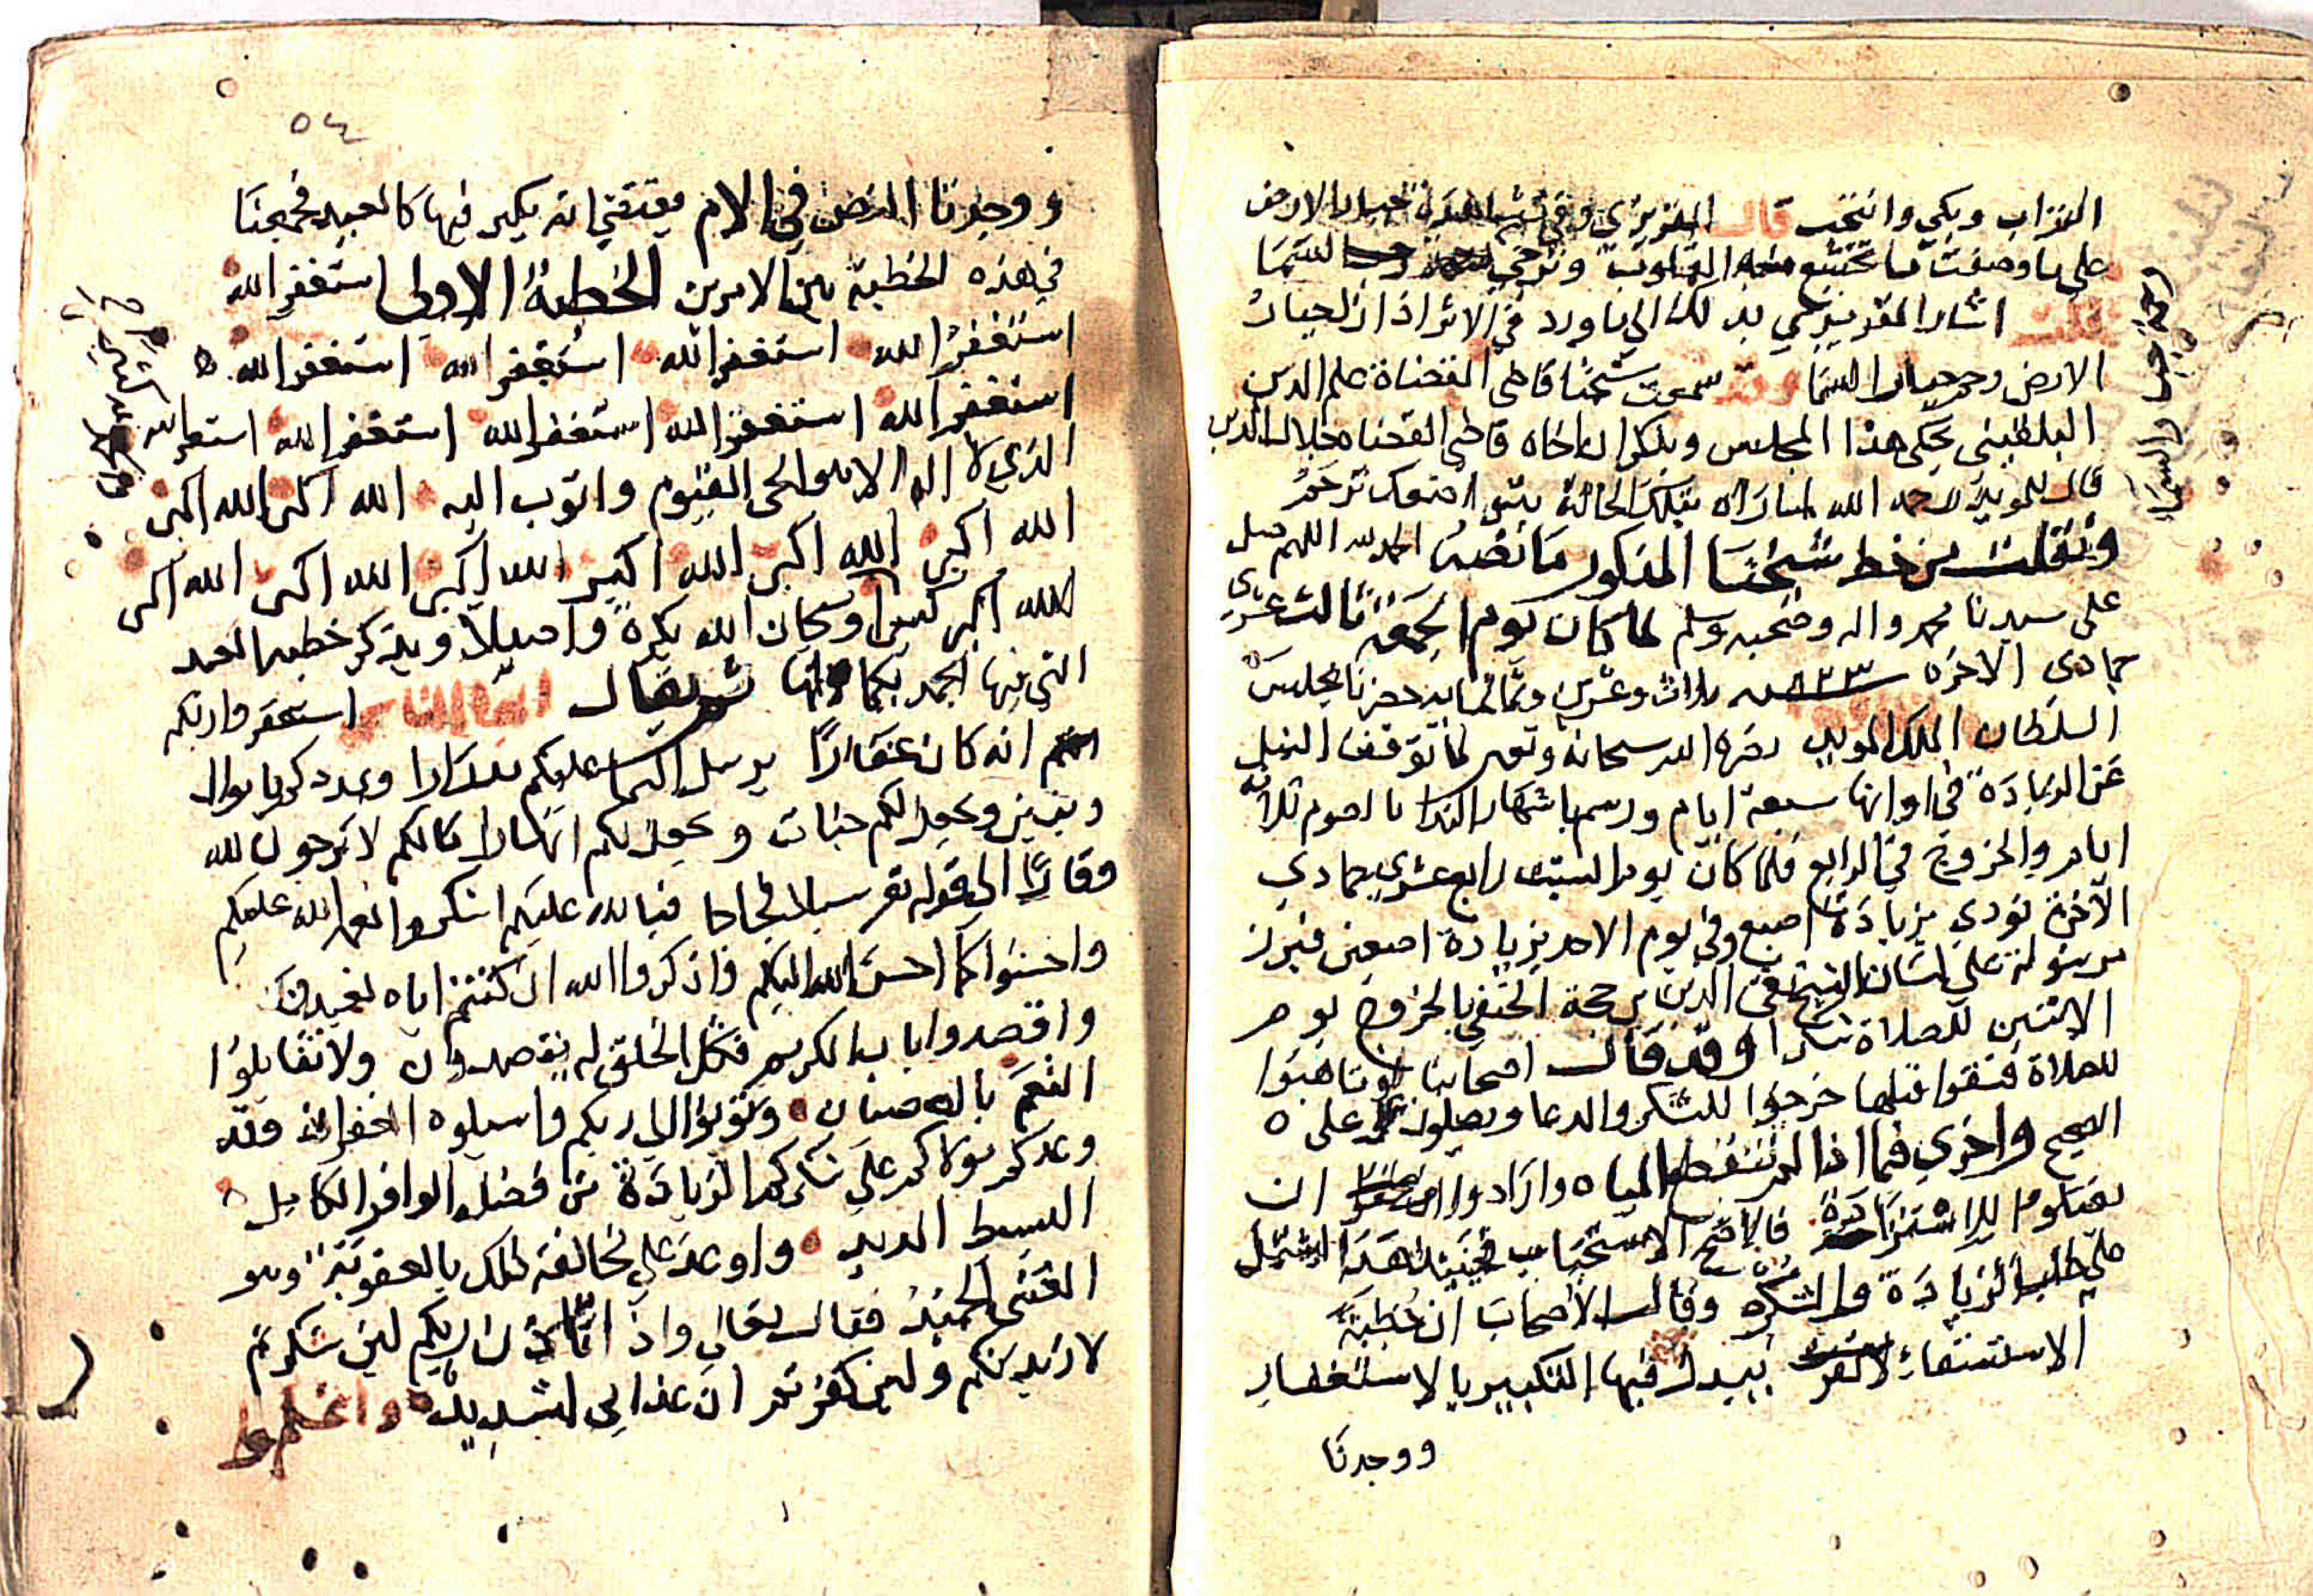 التراب وبكى وانتحب قال المقريزي وفي مشاهدة جبار الارض
على ما وصفت ما تخشع منه القلوب وترجى رحمة جبار السما
قلت اشار المقريزي بذلك الى ما ورد في الاثر اذا ذل جبار
الارض رحم جبار السما وقد سمعت شيخنا قاضي القضاة علم الدين
البلقيني يحكي هذا المجلس ويذكر ان اخاه قاضي القضاه جلال الدين
قال للمويد رحمه الله لما راه بتلك الحالة
ونقلت من خط شيخنا المذكور ما نصه الحمد لله اللهم صل
على سيدنا محمد واله وصحبه وسلم لما كان يوم الجمعة ثالث عشري
جمادى الاخره سنة ٨٢٣ ثلاث وعشرين وثمانمايه حضرنا مجلس
السلطان الملك المويد نصره الله سبحانه وتعالى لما توقف النيل
عن الزيادة في اوانها سبعة ايام ورسم باشهار الندا بالصوم ثلاثة
ايام والخروج في الرابع فلما كان يوم السبت رابع عشري جمادي
الآخرة نودي بزيادة اصبع وفي يوم الاحد بزيادة اصبعين فبرز
مرسوله على لسان الشيخ تقي الدين بن حجة الحنفي بالخروج يوم
الاثنين للصلاة شكرا وقد قال اصحابنا لو تاهبوا
للصلاة فسقوا قبلها خرجوا للشكر والدعا ويصلون على
الصحيح واخري فيما اذا لم تنقطع المياه وارادوا ان
يصلوا للاستزادة فالاصح الاستحباب فحينئذ هذه تشتمل
على طلب الزيادة والشكر وقال الاصحاب ان خطبة
الاستسقاء يبدل فيها التكبير بالاستغفار
ووجدنا
رحم جبار السما
٥٤
ووجدنا النص في الام يقتضي انه يكبر فيها كالعيد فجمعنا
في هذه الخطبة بين الامرين الخطبة الاولى استغفر الله
استغفر الله استغفر الله استغفر الله استغفر الله
استغفر الله استغفر الله استغفر الله استغفر الله استغفر الله
الذي لا اله الا هو الحي القيوم واتوب اليه الله اكبر الله اكبر
الله اكبر الله اكبر الله اكبر الله اكبر الله اكبر الله اكبر
الله اكبر كبيرا وسبحان الله بكرة واصيلا ويذكر خطبه العيد
التي فيها الحمد بكمالها ثم يقال ايها الناس استغفروا ربكم
انه كان غفارًا يرسل السما عليكم مدرارا ويمددكم باموال
وبنين ويجعل لكم جنات ويجعل لكم انهارا ما لكم لا ترجون لله
وقارًا الى قوله تعالى سبلا فجاجا فبالله عليكم اشكروا نعم الله عليكم
واحسنوا كما احسن الله اليكم واذكروا الله ان كنتم اياه تعبدون
واقصدوا باب الكريم فكل الخلق له يقصدون ولا تقابلوا
النعم بالعصيان وتوبوا الى ربكم واسيلوه الغفران فقد
وعدكم مولاكم على شكركم الزيادة من فضله الوافر الكامل
البسيط المديد واوعد على مخالفة ذلك بالعقوبة وهو
الغني الحميد فقال تعالى واذ تاذن ربكم لين شكرتم
لازيدنكم ولين كفرتم ان عذابي لشديد واعلموا